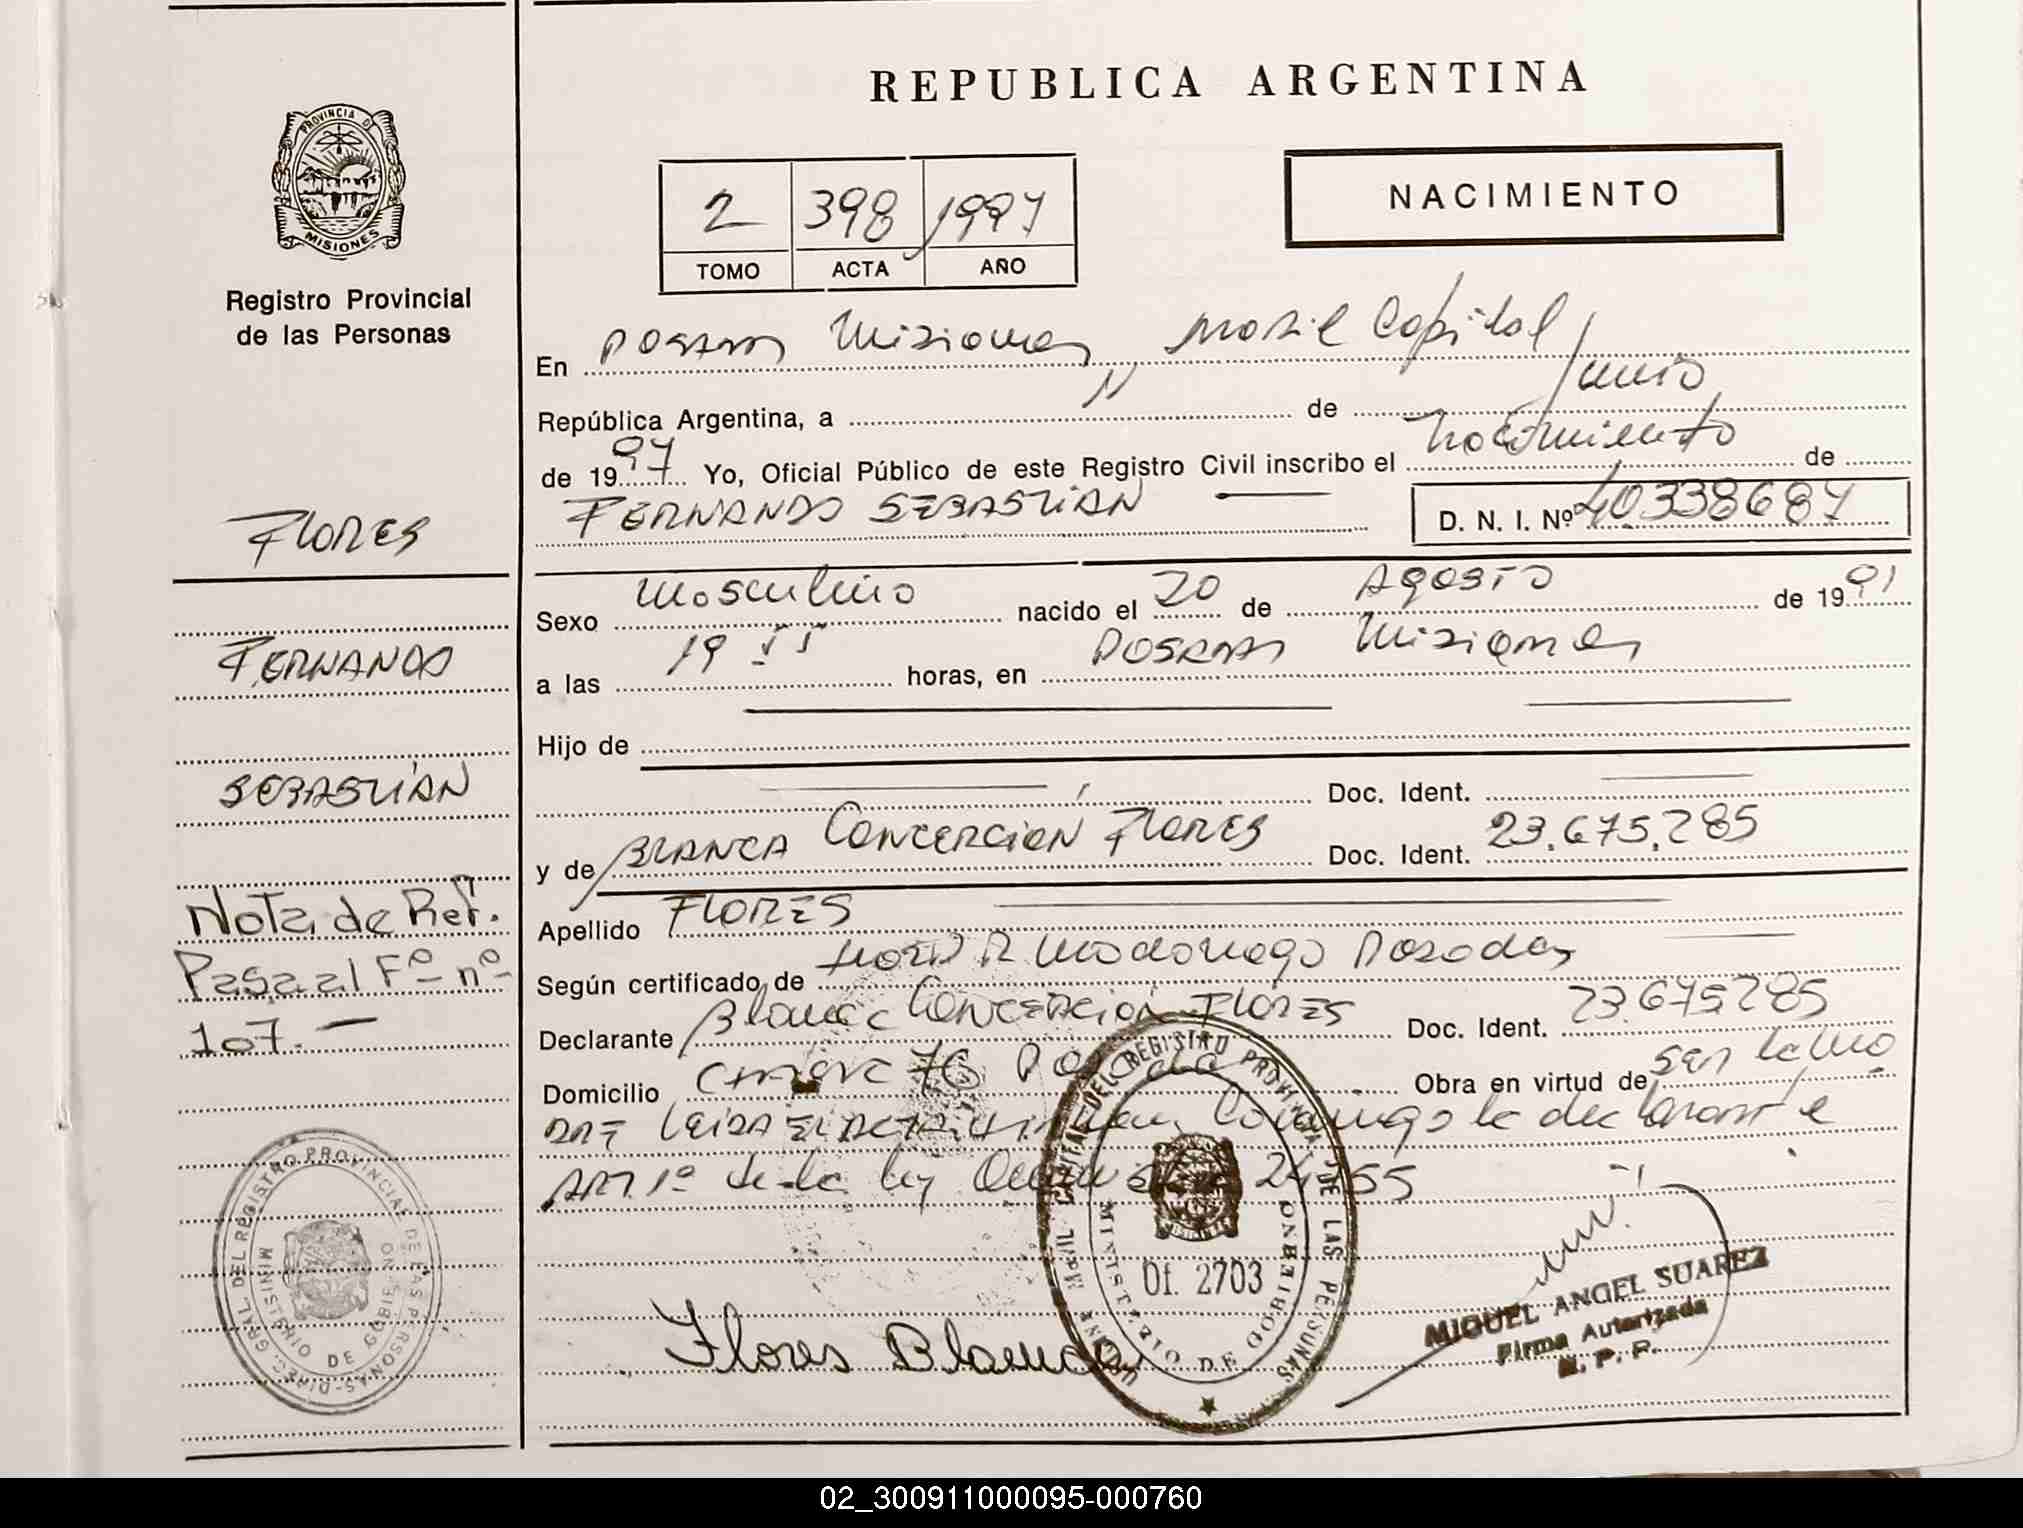 REPUBLICA ARGENTINA
PROVINCIA D
MISIONES
Registro Provincial
de las Personas
NACIMIENTO
2 398 1997
TOMO ACTA AÑO
En Posadas Misiones Movil Capital
República Argentina, a 11 de Junio
de 1997 Yo, Oficial Público de este Registro Civil inscribo el nacimiento de
FERNANDO SEBASTIÁN D. N. I. Nº 40338687
FLORES
FERNANDO
SEBASTIÁN
Nota de Ref.
Pasa al Fº nº
107.-
Sexo Masculino nacido el 20 de Agosto de 1991
a las 19 horas, en Posadas Misiones
Hijo de
Doc. Ident.
y de BLANCA CONCEPCIÓN FLORES Doc. Ident. 23.675.285
Apellido FLORES
Según certificado de R Madariaga Posadas
Declarante Blanca CONCEPCIÓN FLORES Doc. Ident. 23.675.285
Domicilio 76 Posadas Obra en virtud de ser la ma
DRE LEIDA EL ACTA la declarante
ART. 1º de la ley
Flores Blanca
UNE MOVIL CAPITAL DEL REGISTRO PROVINCIAL DE LAS PERSONAS
MINISTERIO DE GOBIERNO
Of. 2703
MIGUEL ANGEL SUAREZ
Firma Autorizada
R. P. P.
GRAL. DEL REGISTRO PROVINCIAL DE LAS PERSONAS-DIREC.
MINISTERIO DE GOBIERNO
02_300911000095-000760